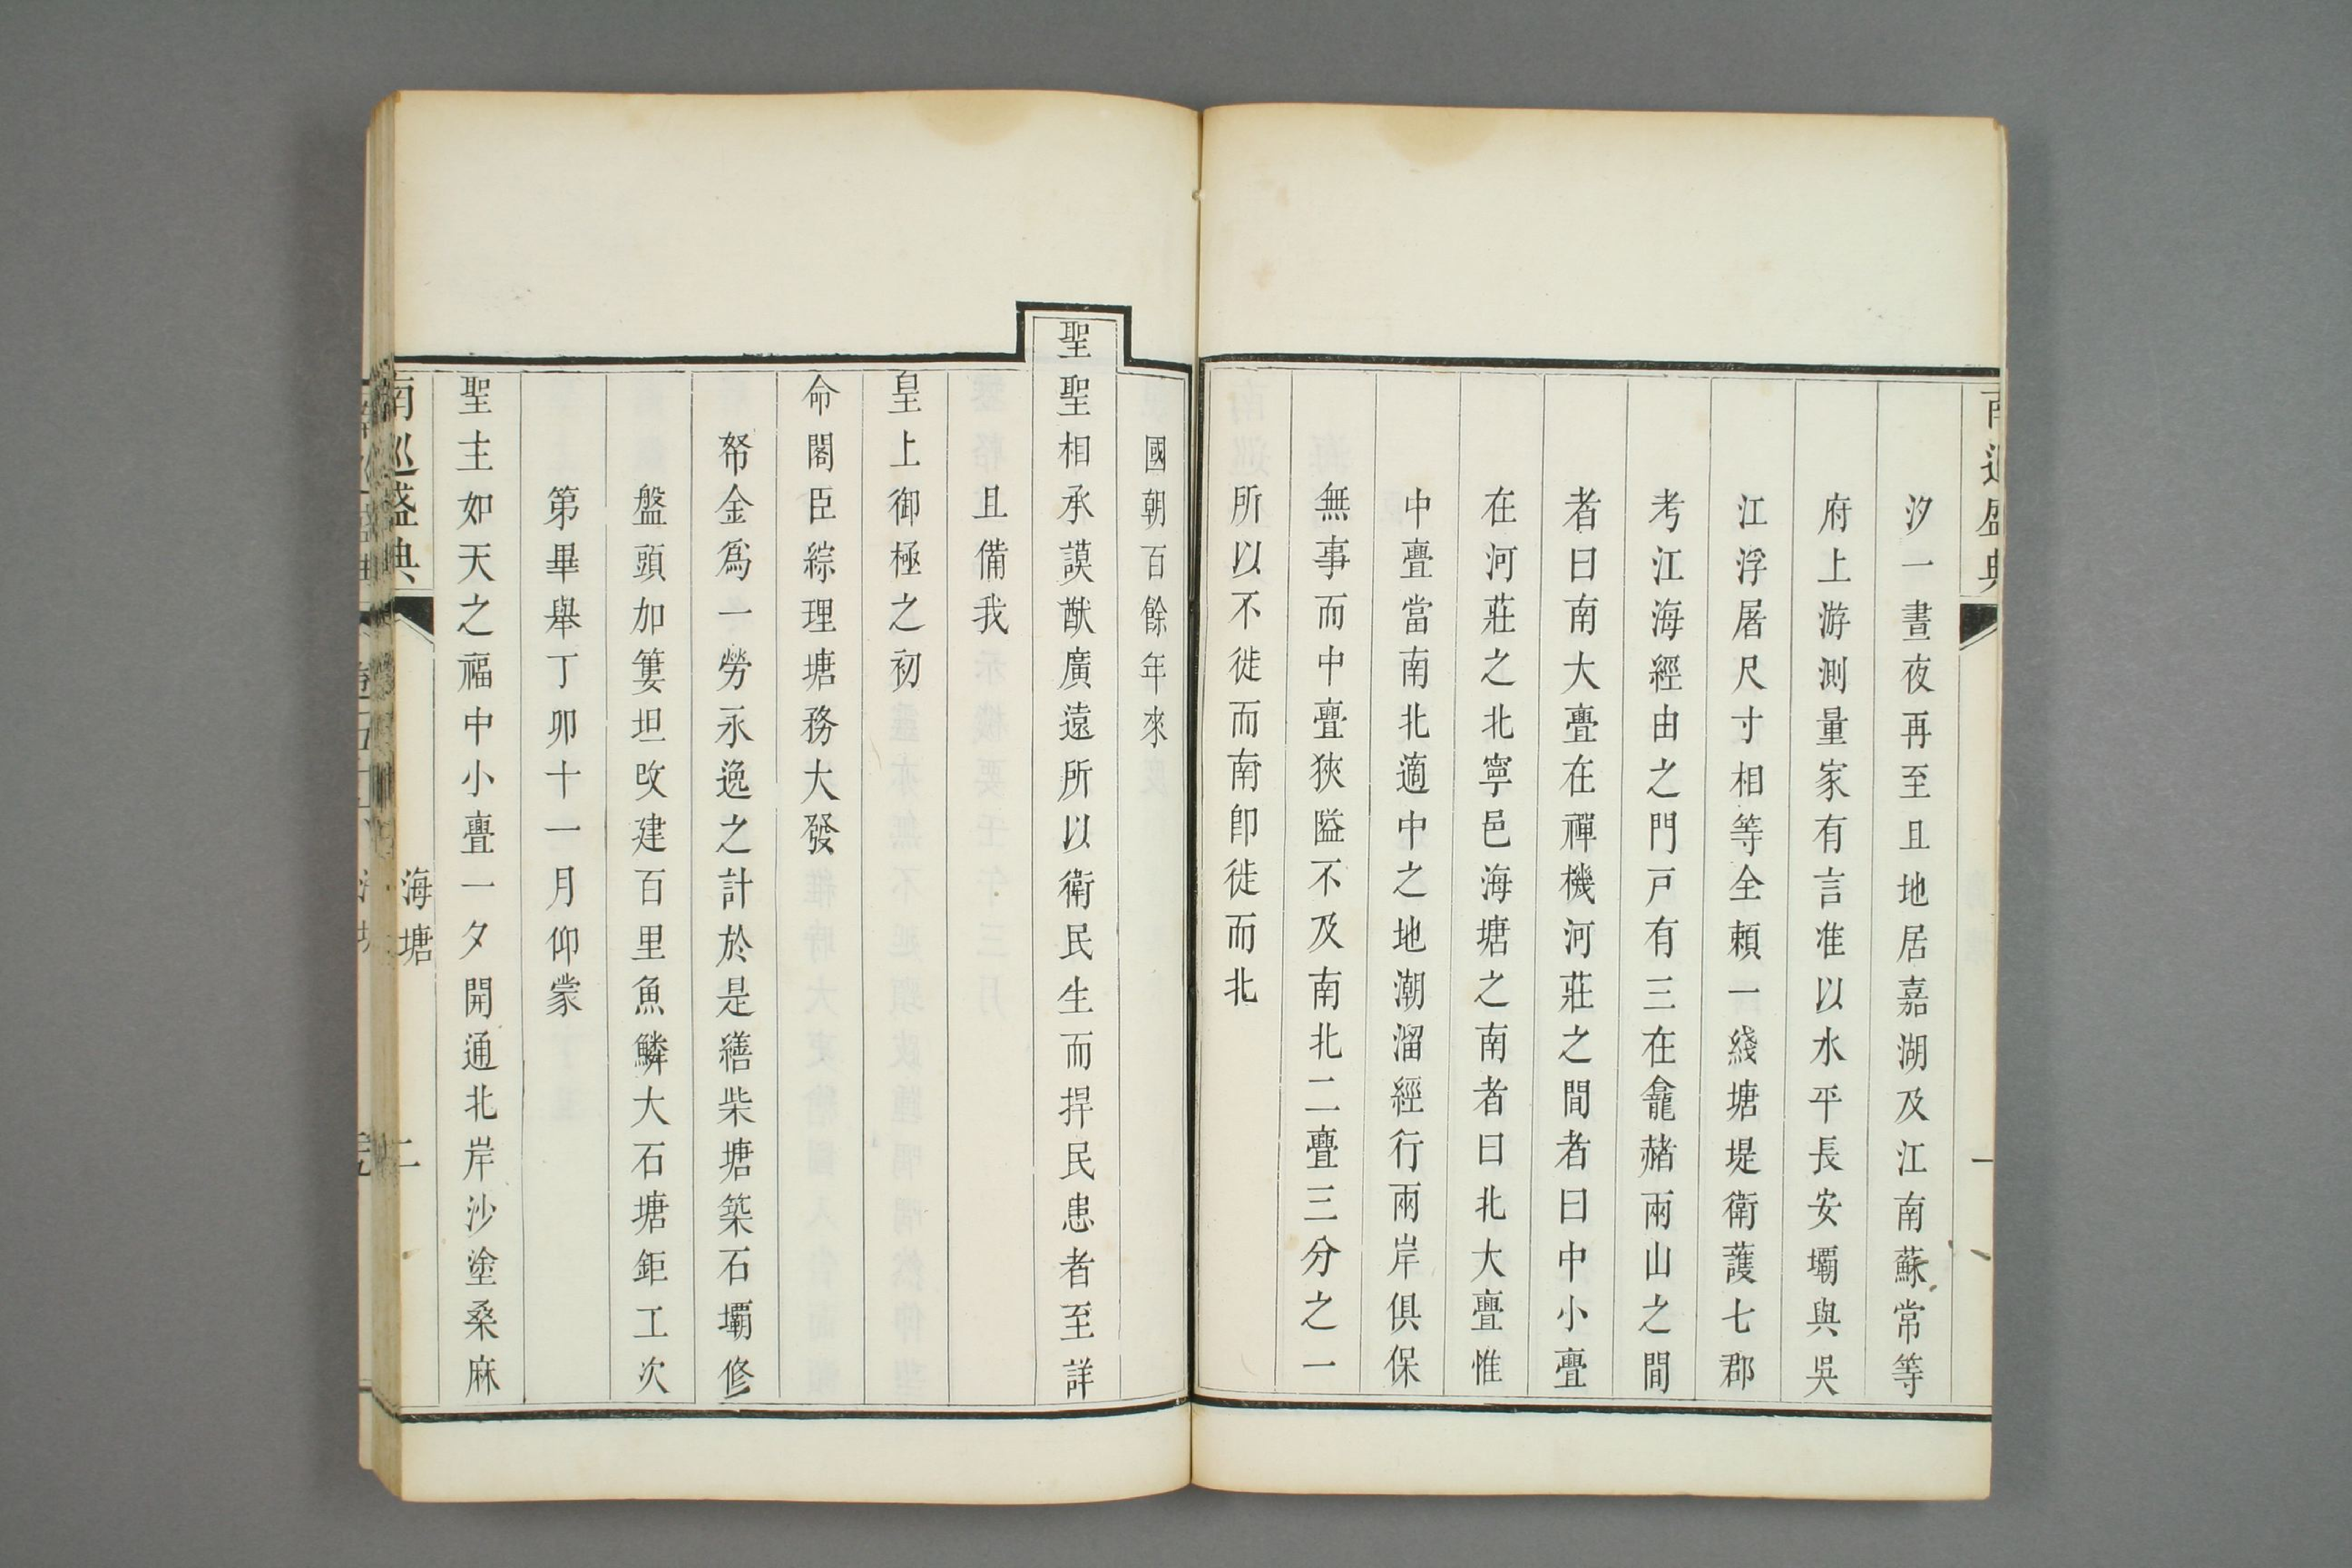 汐一晝夜再至且地居嘉湖及江南蘇常等
府上游測量家有言准以水平長安壩與吳
江浮屠尺寸相等全賴一綫塘堤衛護七郡
考江海經由之門戸有三在龕赭兩山之間
者曰南大亹在禪機河莊之間者曰中小亹
在河莊之北寧邑海塘之南者曰北大亹惟
中亹當南北適中之地潮溜經行兩岸俱保
無事而中亹狹隘不及南北二亹三分之一
所以不徙而南卽徙而北
國朝百餘年來
聖聖相承謨猷廣遠所以衛民生而捍民患者至詳
且備我
皇上御極之初
命閣臣綜理塘務大發
帑金爲一勞永逸之計於是繕柴塘築石壩修
盤頭加簍坦改建百里魚鱗大石塘鉅工次
第畢舉丁卯十一月仰蒙
聖主如天之福中小亹一夕開通北岸沙塗桑麻
南巡盛典
海塘
二